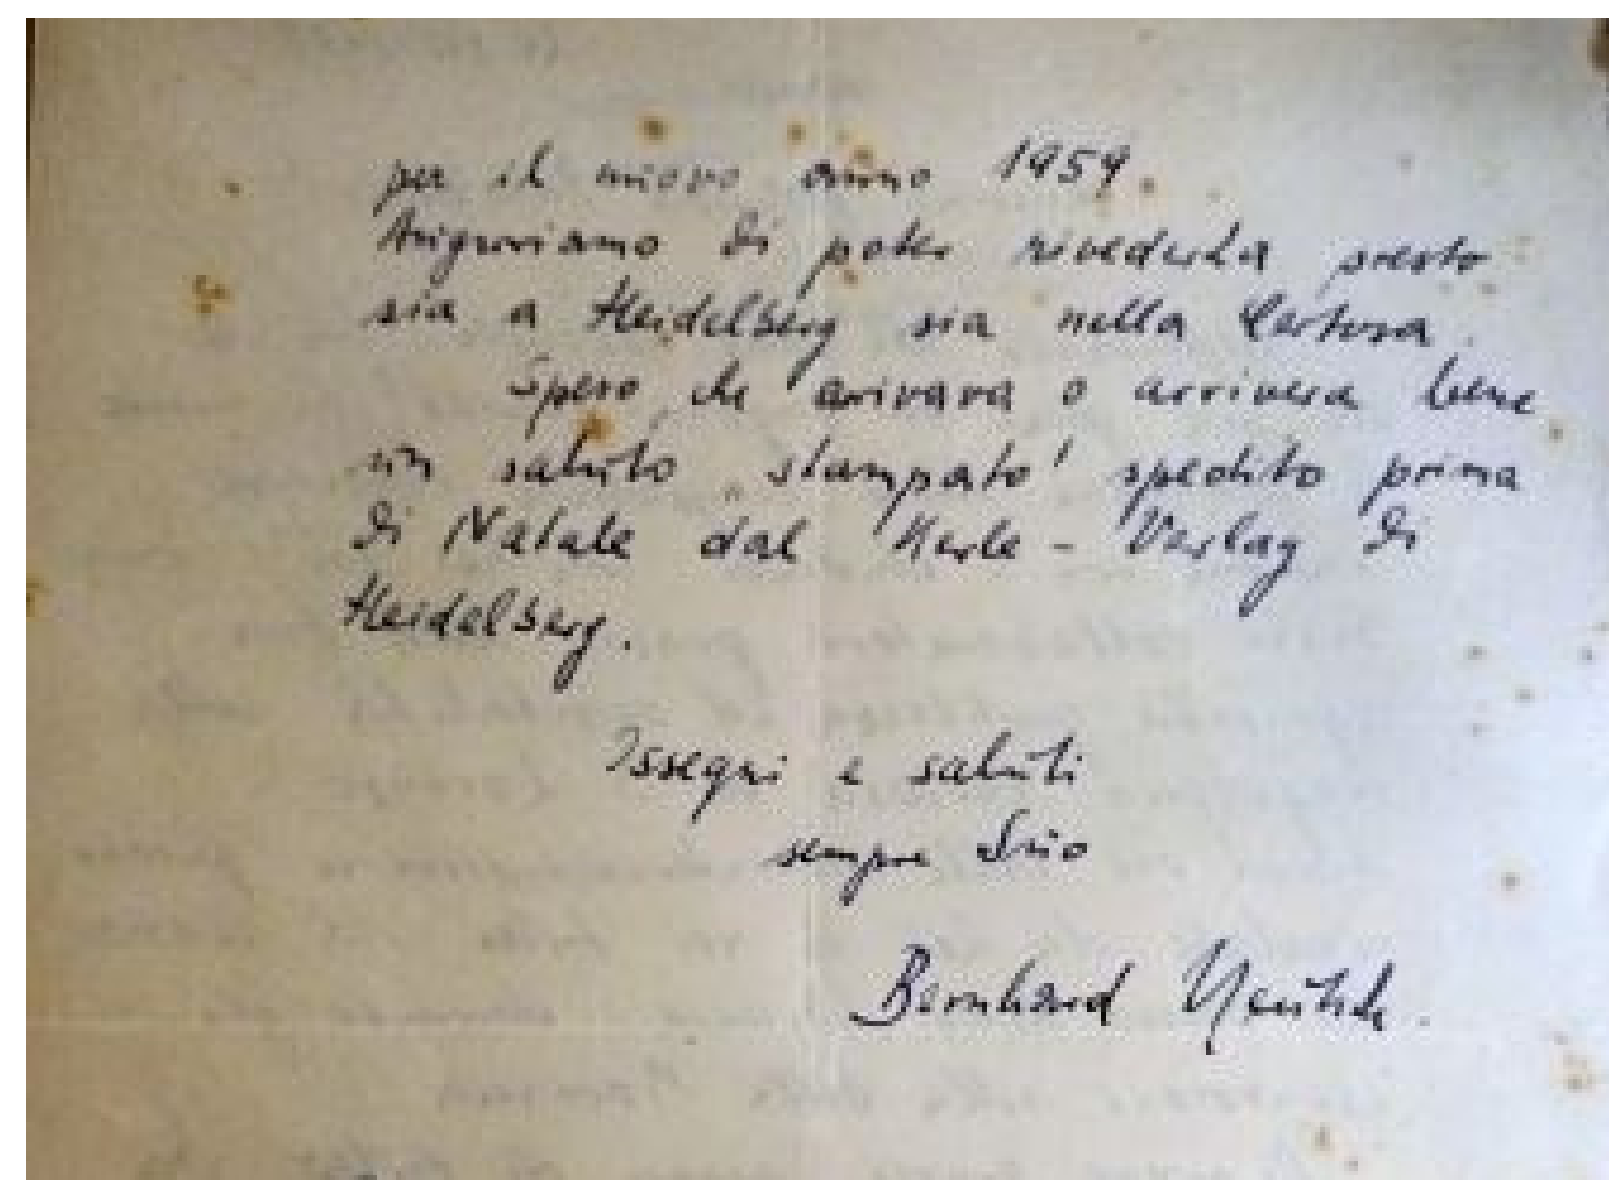 per il nuovo anno 1959.
Auguriamo di poter rivederla presto
sia a Heidelberg sia nella Certosa.
Spero che arivava o arrivera bene
un saluto „stampato' spedito prima
di Natale dal Kerle - Verlag di
Heidelberg.
Ossequi e saluti
sempre Suo
Bernhard Neutsch.